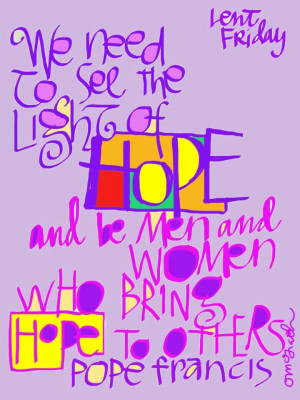 Lent
Friday
We need
to see the
Light of
HOPE
and be Men and
WOMEN
WHO BRING
HOPE TO OTHERS
POPE francis